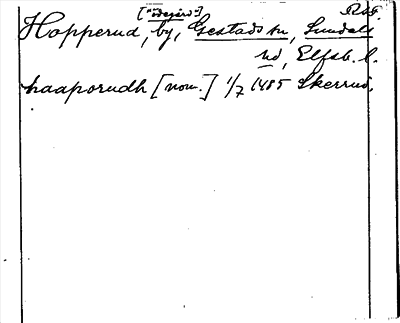 ["ödegård"] RAF.
Hopperud, by, Gestads sn, Sundals
hd, Elfsb. l.
haaporudh [nom.] 1/7 1485 Skerrud.